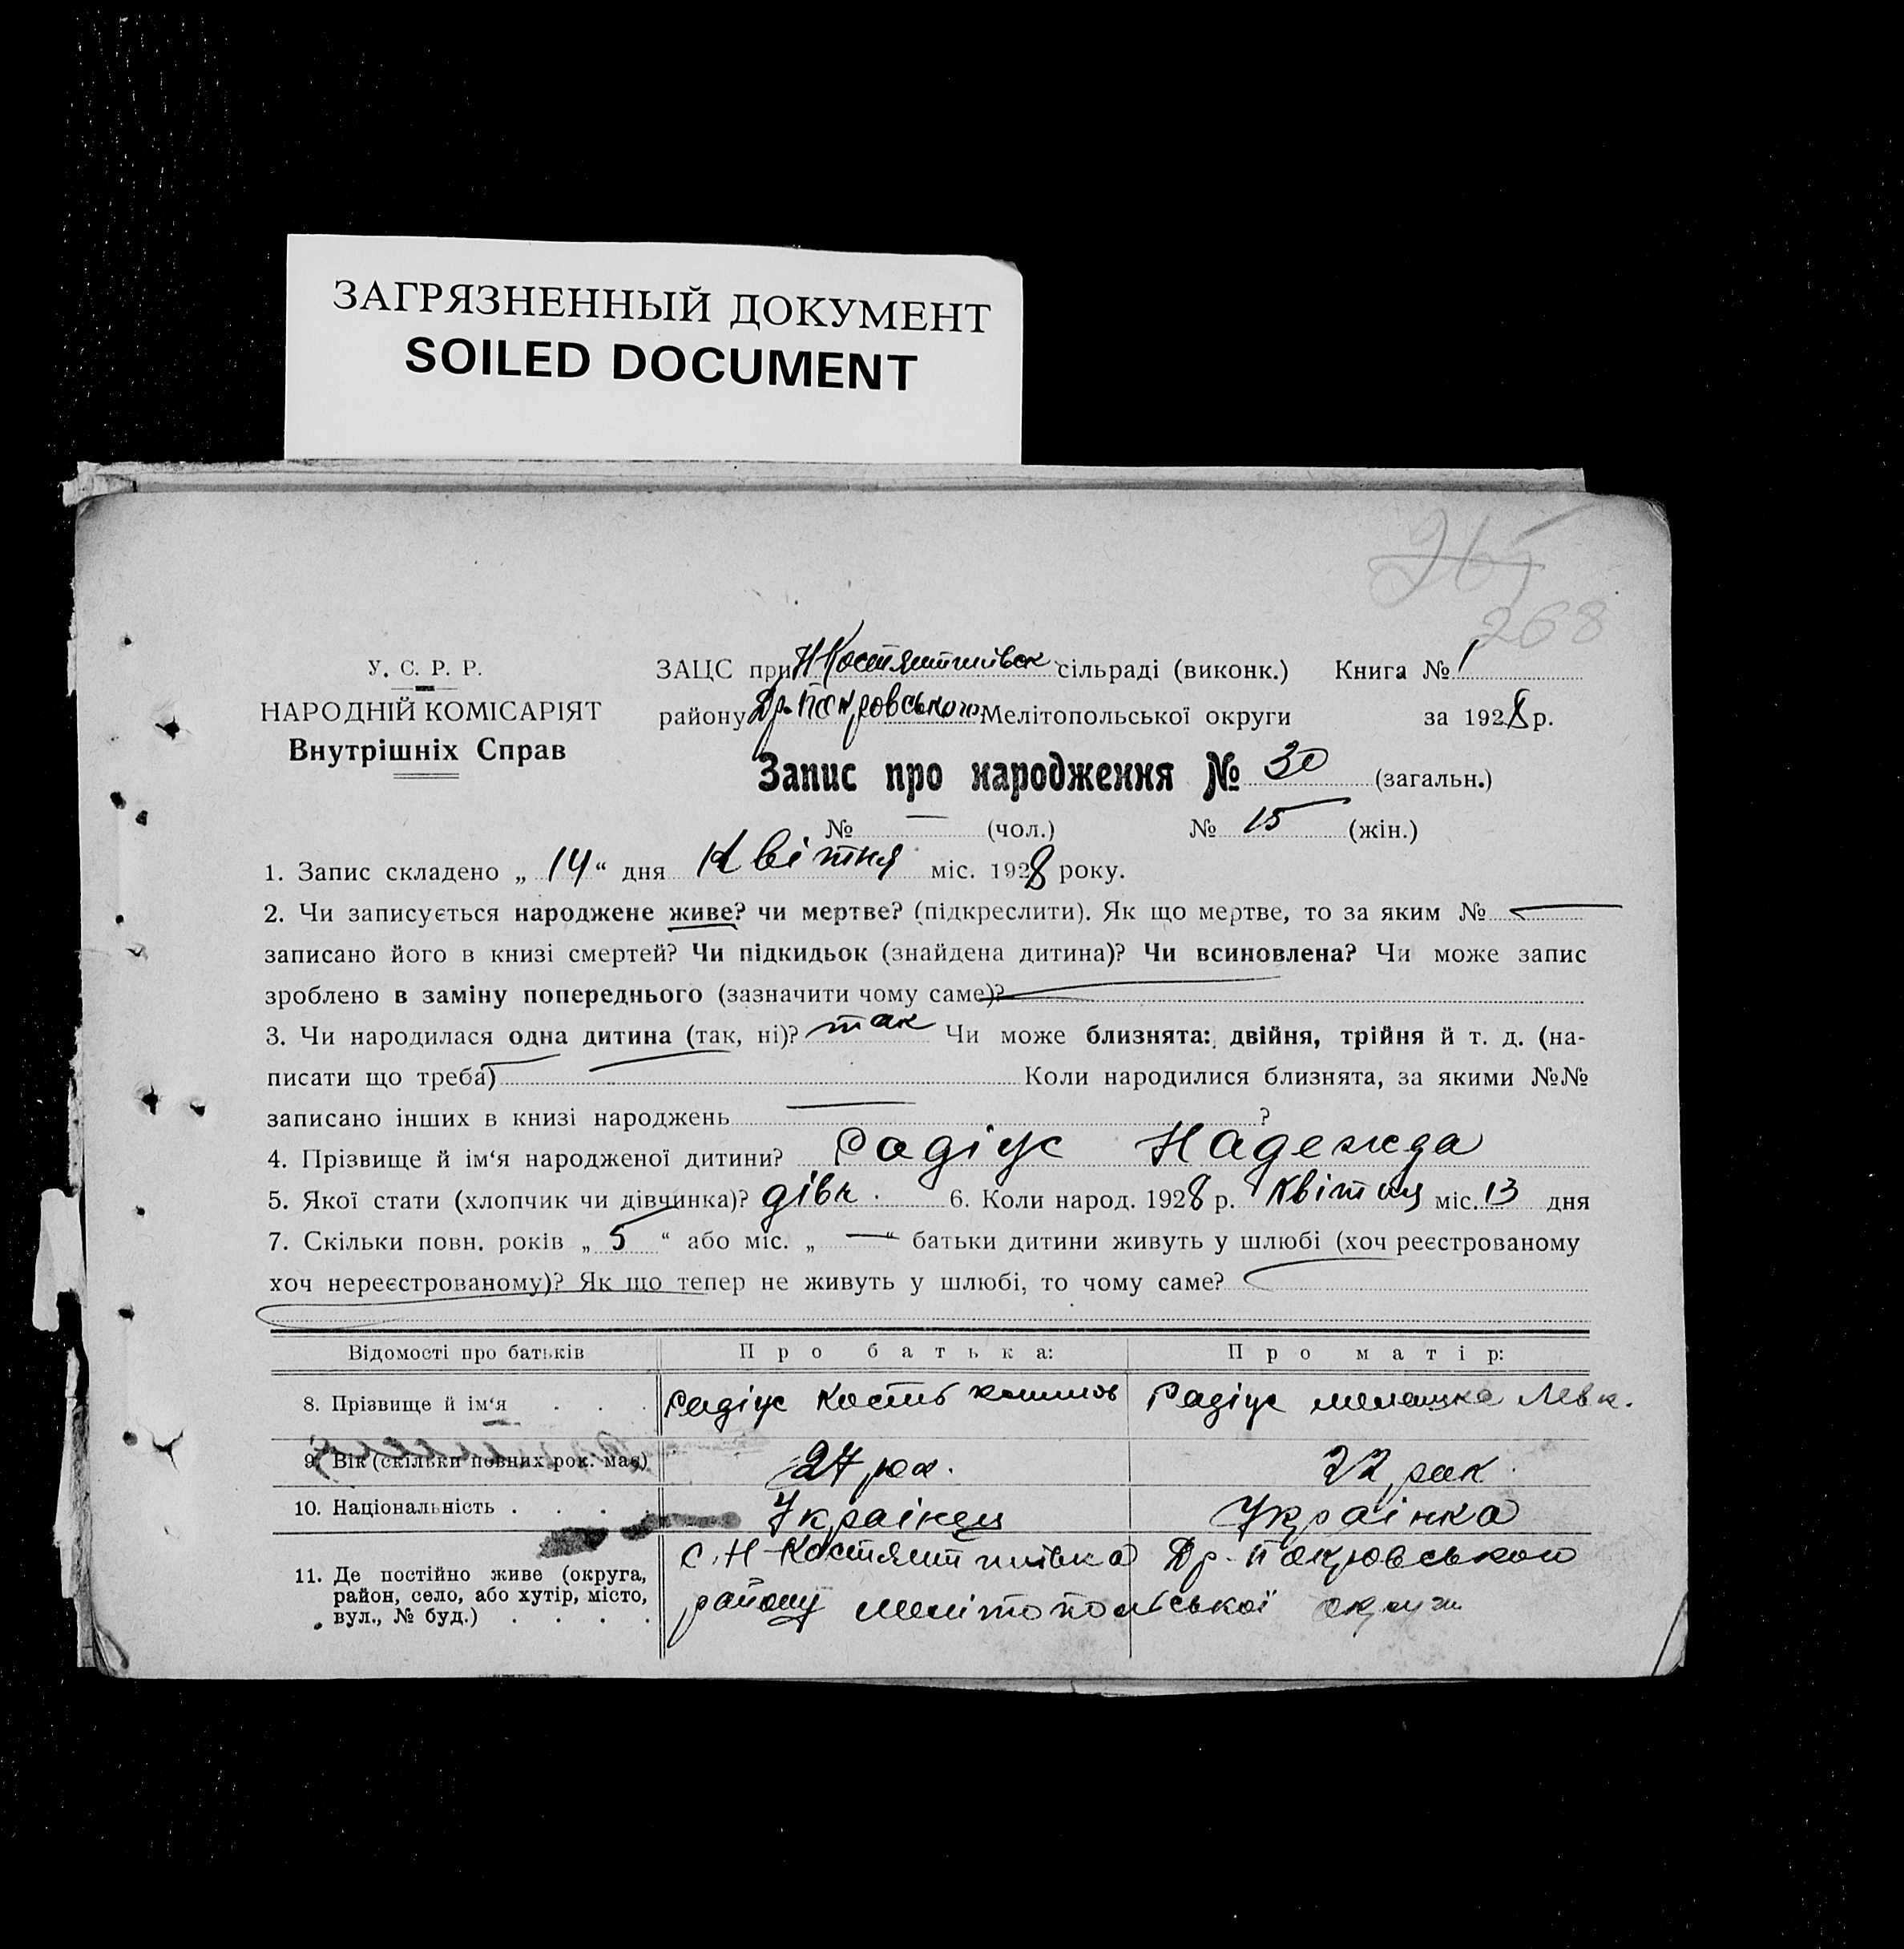 ЗАГРЯЗНЕННЫЙ ДОКУМЕНТ
SOILED DOCUMENT
265
268
У. С. Р. Р.
НАРОДНІЙ КОМІСАРІЯТ
Внутрішніх Справ
ЗАЦС при сільраді (виконк.) Книга № 1
району Др. Покровського Мелітопольської округи за 1928 р.
Запис про народження № 30 (загальн.)
№ — (чол.) № 15 (жін.)
1. Запис складено „ 14 “ дня Квітня міс. 1928 року.
2. Чи записується народжене живе? чи мертве? (підкреслити). Як що мертве, то за яким № —
записано його в книзі смертей? Чи підкидьок (знайдена дитина)? Чи всиновлена? Чи може запис
зроблено в заміну попереднього (зазначити чому саме)?
3. Чи народилася одна дитина (так, ні)? так Чи може близнята: двійня, трійня й т. д. (на-
писати що треба) Коли народилися близнята, за якими №№
записано інших в книзі народжень — ?
4. Прізвище й ім‘я народженої дитини? Радіус Надежда
5. Якої стати (хлопчик чи дівчинка)? дівч. 6. Коли народ. 1928 р. Квітня міс. 13 дня
7. Скільки повн. років „ 5 “ або міс. „ — “ батьки дитини живуть у шлюбі (хоч реєстрованому
хоч нереєстрованому)? Як що тепер не живуть у шлюбі, то чому саме?
Відомості про батьків Про батька: Про матір:
8. Прізвище й ім‘я . . . Радіус Кость Радіус Мелашка Левк.
9. Вік (скільки повних рок. має) 27 рок. 22 рок.
10. Національність . . . . Українец Українка
11. Де постійно живе (округа,
район, село, або хутір, місто,
вул., № буд.) . . . .
с. Н-Костянтинівка Др. Покровського
району Мелітопольської округи